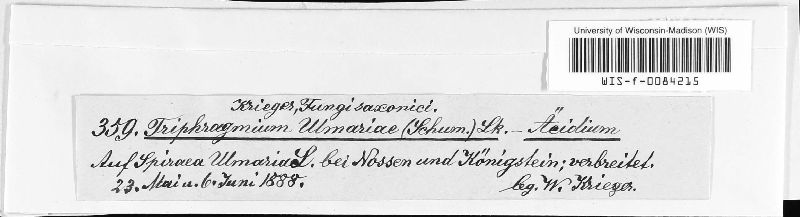 University of Wisconsin-Madison (WIS)
WIS-f-0084215
Krieger, Fungi saxonici.
359. Triphragmium Ulmariae (Schum.) Lk. – Äcidium
Auf Spiraea Ulmaria L. bei Nossen und Königstein, verbreitet.
23. Mai u. 6. Juni 1888. leg. W. Krieger.